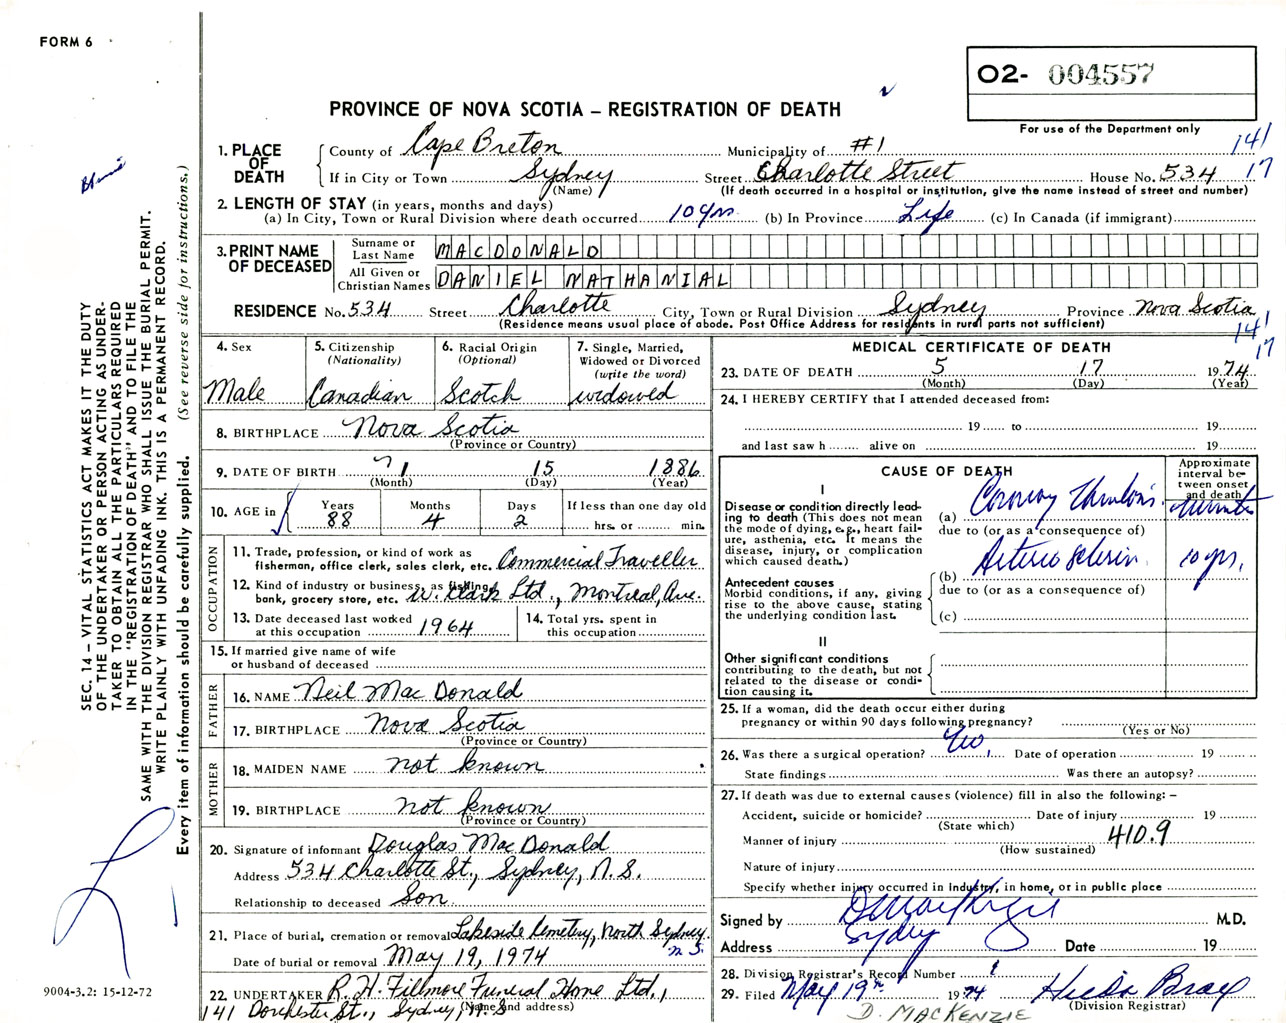 FORM 6
O2- 004557
PROVINCE OF NOVA SCOTIA – REGISTRATION OF DEATH
For use of the Department only
141
17
1. PLACE OF DEATH
County of Cape Breton Municipality of #1
If in City or Town Sydney Street Charlotte Street House No. 534
(Name) (If death occurred in a hospital or institution, give the name instead of street and number)
2. LENGTH OF STAY (in years, months and days)
(a) In City, Town or Rural Division where death occurred 10 yrs (b) In Province Life (c) In Canada (if immigrant)
3. PRINT NAME OF DECEASED
Surname or Last Name MACDONALD
All Given or Christian Names DANIEL NATHANIAL
RESIDENCE No. 534 Street Charlotte City, Town or Rural Division Sydney Province Nova Scotia
(Residence means usual place of abode. Post Office Address for residents in rural parts not sufficient)
141
17
4. Sex
Male
5. Citizenship
(Nationality)
Canadian
6. Racial Origin
(Optional)
Scotch
7. Single, Married,
Widowed or Divorced
(write the word)
widowed
8. BIRTHPLACE Nova Scotia
(Province or Country)
9. DATE OF BIRTH 1 15 1886
(Month) (Day) (Year)
10. AGE in
Years Months Days If less than one day old
88 4 2 hrs. or min.
OCCUPATION
11. Trade, profession, or kind of work as
fisherman, office clerk, sales clerk, etc. Commercial Traveller
12. Kind of industry or business, as fishing,
bank, grocery store, etc. W. Clark Ltd., Montreal, Que.
13. Date deceased last worked
at this occupation 1964
14. Total yrs. spent in
this occupation
15. If married give name of wife
or husband of deceased
FATHER
16. NAME Neil Mac Donald
17. BIRTHPLACE Nova Scotia
(Province or Country)
MOTHER
18. MAIDEN NAME not known
19. BIRTHPLACE not known
(Province or Country)
20. Signature of informant Douglas Mac Donald
Address 534 Charlotte St., Sydney, N.S.
Relationship to deceased Son
21. Place of burial, cremation or removal Lakeside Cemetery, North Sydney
N.S.
Date of burial or removal May 19, 1974
22. UNDERTAKER R. H. Fillmore Funeral Home Ltd.,
(Name and address)
141 Dorchester St., Sydney, N.S
MEDICAL CERTIFICATE OF DEATH
23. DATE OF DEATH 5 17 1974
(Month) (Day) (Year)
24. I HEREBY CERTIFY that I attended deceased from:
19 to 19
and last saw h alive on 19
CAUSE OF DEATH
Approximate interval between onset and death
I
Disease or condition directly leading to death (This does not mean the mode of dying, e.g., heart failure, asthenia, etc. It means the disease, injury, or complication which caused death.)
(a) Coronary Thrombosis minutes
due to (or as a consequence of)
(b) 10 yrs.
due to (or as a consequence of)
(c)
Antecedent causes
Morbid conditions, if any, giving rise to the above cause, stating the underlying condition last.
II
Other significant conditions
contributing to the death, but not related to the disease or condition causing it.
25. If a woman, did the death occur either during
pregnancy or within 90 days following pregnancy?
(Yes or No)
26. Was there a surgical operation? Date of operation 19
State findings Was there an autopsy?
27. If death was due to external causes (violence) fill in also the following: –
Accident, suicide or homicide? Date of injury 19
(State which)
Manner of injury 410.9
(How sustained)
Nature of injury
Specify whether injury occurred in industry, in home, or in public place
Signed by M.D.
Address Sydney Date 19
28. Division Registrar's Record Number
29. Filed May 19th 1974 Hilda Bray
(Division Registrar)
D. MACKENZIE
SEC. 14 – VITAL STATISTICS ACT MAKES IT THE DUTY
OF THE UNDERTAKER OR PERSON ACTING AS UNDER-
TAKER TO OBTAIN ALL THE PARTICULARS REQUIRED
IN THE "REGISTRATION OF DEATH" AND TO FILE THE
SAME WITH THE DIVISION REGISTRAR WHO SHALL ISSUE THE BURIAL PERMIT.
WRITE PLAINLY WITH UNFADING INK. THIS IS A PERMANENT RECORD.
Every item of information should be carefully supplied. (See reverse side for instructions.)
9004-3.2: 15-12-72